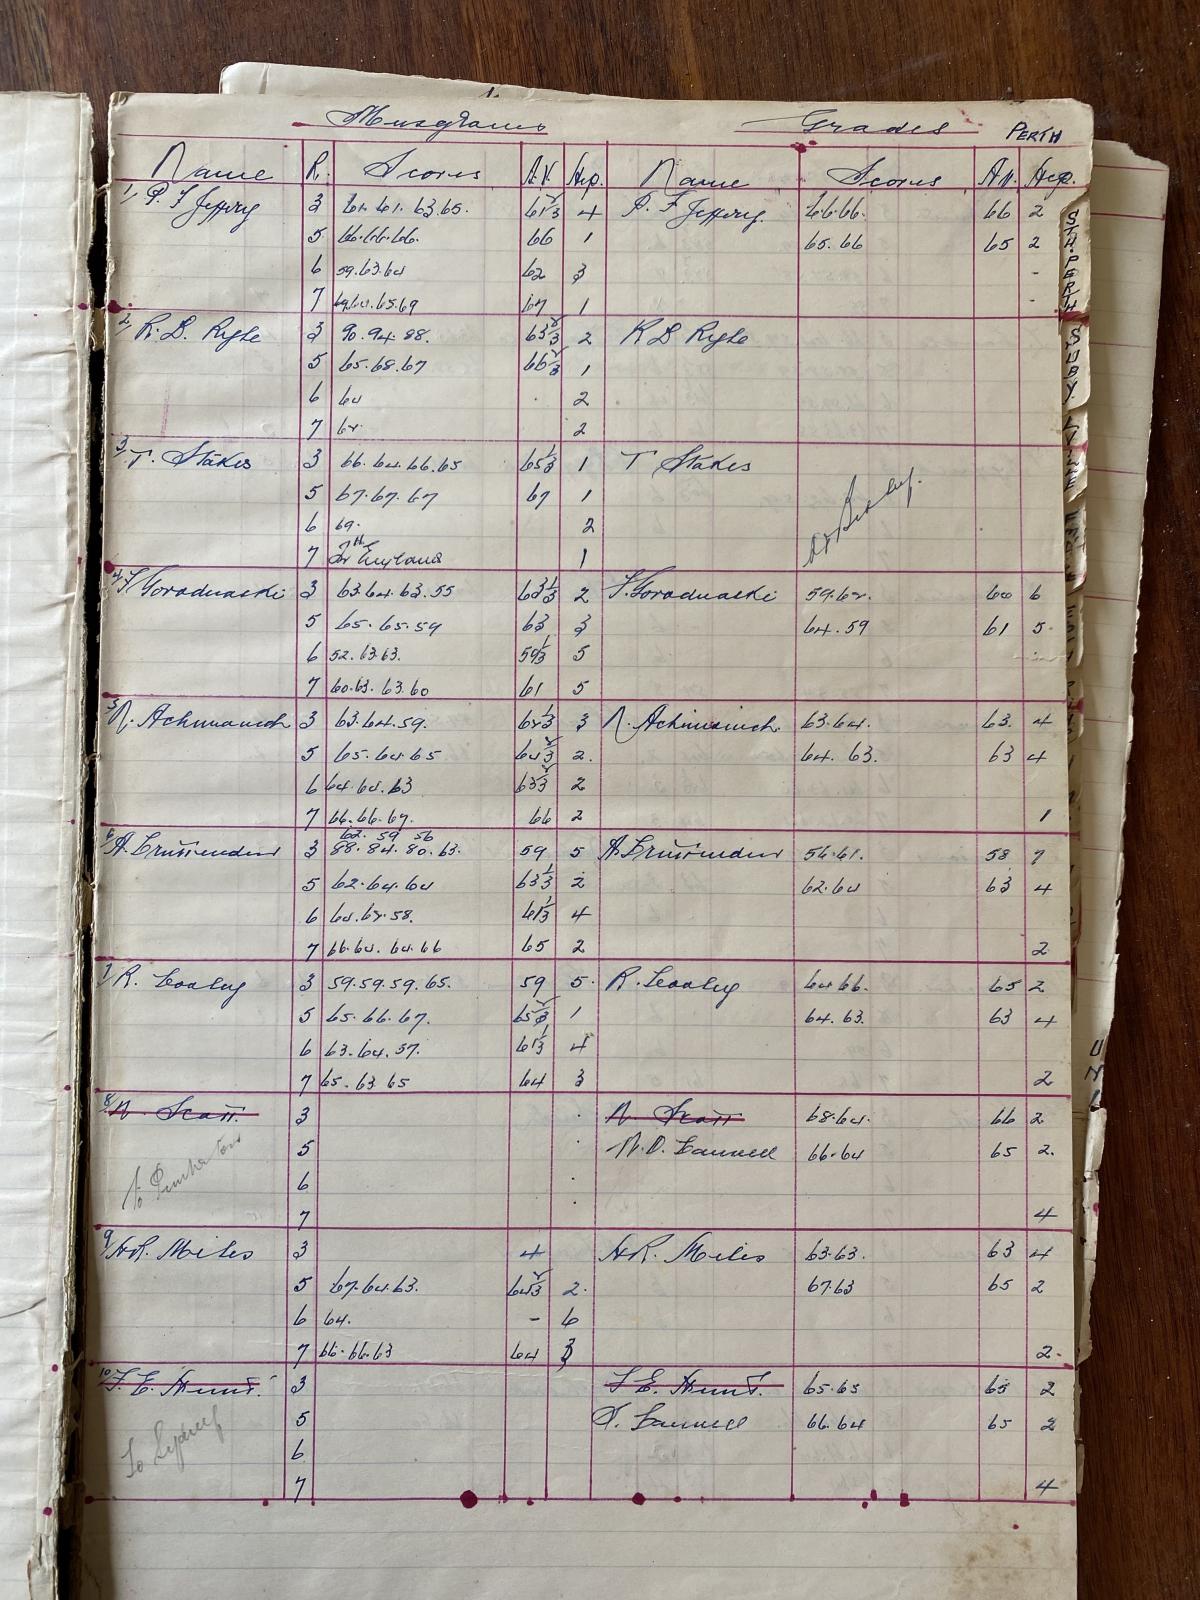 Musgraves Grades PERTH
Name R. Scores AV. Hcp. Name Scores AV. Hcp.
1, P. F Jeffery 3 61. 61. 63. 65. 61⅔ 4 P. F Jeffery. 66.66. 66 2
5 66.66.66. 66 1 65. 66 65 2
6 59.63.64 62 3 -
7 69.64.65.69 67 1 -
2, R. D. Ryle 3 90. 94. 88. 63⅔ 2 R D Ryle
5 65.68.67 66⅔ 1
6 64 2
7 62 2
3, T. Stakes 3 66. 64. 66. 65 65⅓ 1 T Stakes
5 67.67.67 67 1
6 69. 2
7 To England 1
4, 3 63.64.63.55 63⅓ 2 59.62. 60 6
5 65. 65. 59 63 3 64.59 61 5
6 52. 63.63. 59⅓ 5
7 60.63. 63.60 61 5
5, N. 3 63.64.59. 62⅓ 3 N. 63.64. 63. 4
5 65.64.65 64⅔ 2. 64. 63. 63 4
6 64.64.63 63⅔ 2
7 66.66.67. 66 2 1
62. 59 56
6, A. Crussenden 3 88. 84. 80. 63. 59 5 A. Crussenden 56.61. 58 7
5 62.64.64 63⅓ 2 62.64 63 4
6 64.62.58. 61⅓ 4
7 66.64. 64.66 65 2 2
7, R. Cooley 3 59.59.59.65. 59 5. R. Cooley 64 66. 65 2
5 65.66.67. 65⅔ 1 64. 63. 63 4
6 63.64.57. 61⅓ 4
7 65.63 65 64 3 2
8, N. Scott 3 N. Scott 68.64. 66 2
5 N. D. Cannell 66.64 65 2.
To Pemberton
6
7 4
9, H.R. Miles 3 4 H.R. Miles 63.63. 63 4
5 67.64.63. 64⅔ 2. 67.63 65 2
6 64. - 6
7 66.66.63 64 3 2.
10, F. E. Hunt. 3 F. E. Hunt. 65.65 65 2
5 Cannell 66.64 65 2
To Sydney
6
7 4
STH. PERTH
SUBY.
U
N